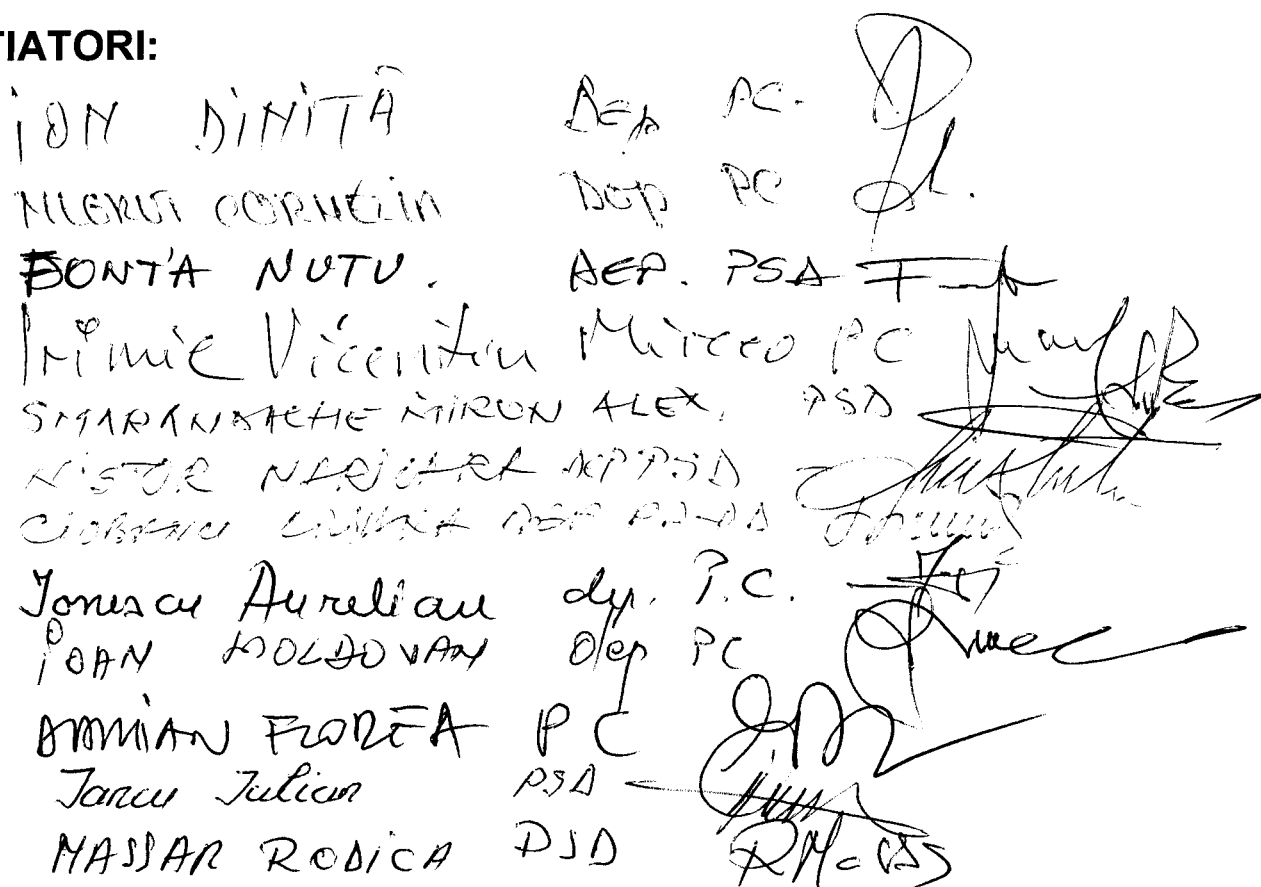 TIATORI:
ION DINIȚĂ Dep PC.
CORNELIU Dep PC
FONTA NUTU. DEP. PSD
Irimie Vicentiu Mircea PC
SMARANDACHE MIRON ALEX. PSD
NISTOR DEP PSD
CIOBANU DEP
Ionescu Aurelian dep. P.C.
IOAN MOLDOVAN dep PC
DAMIAN FLOREA PC
Iancu Iulian PSD
NASSAR RODICA PSD